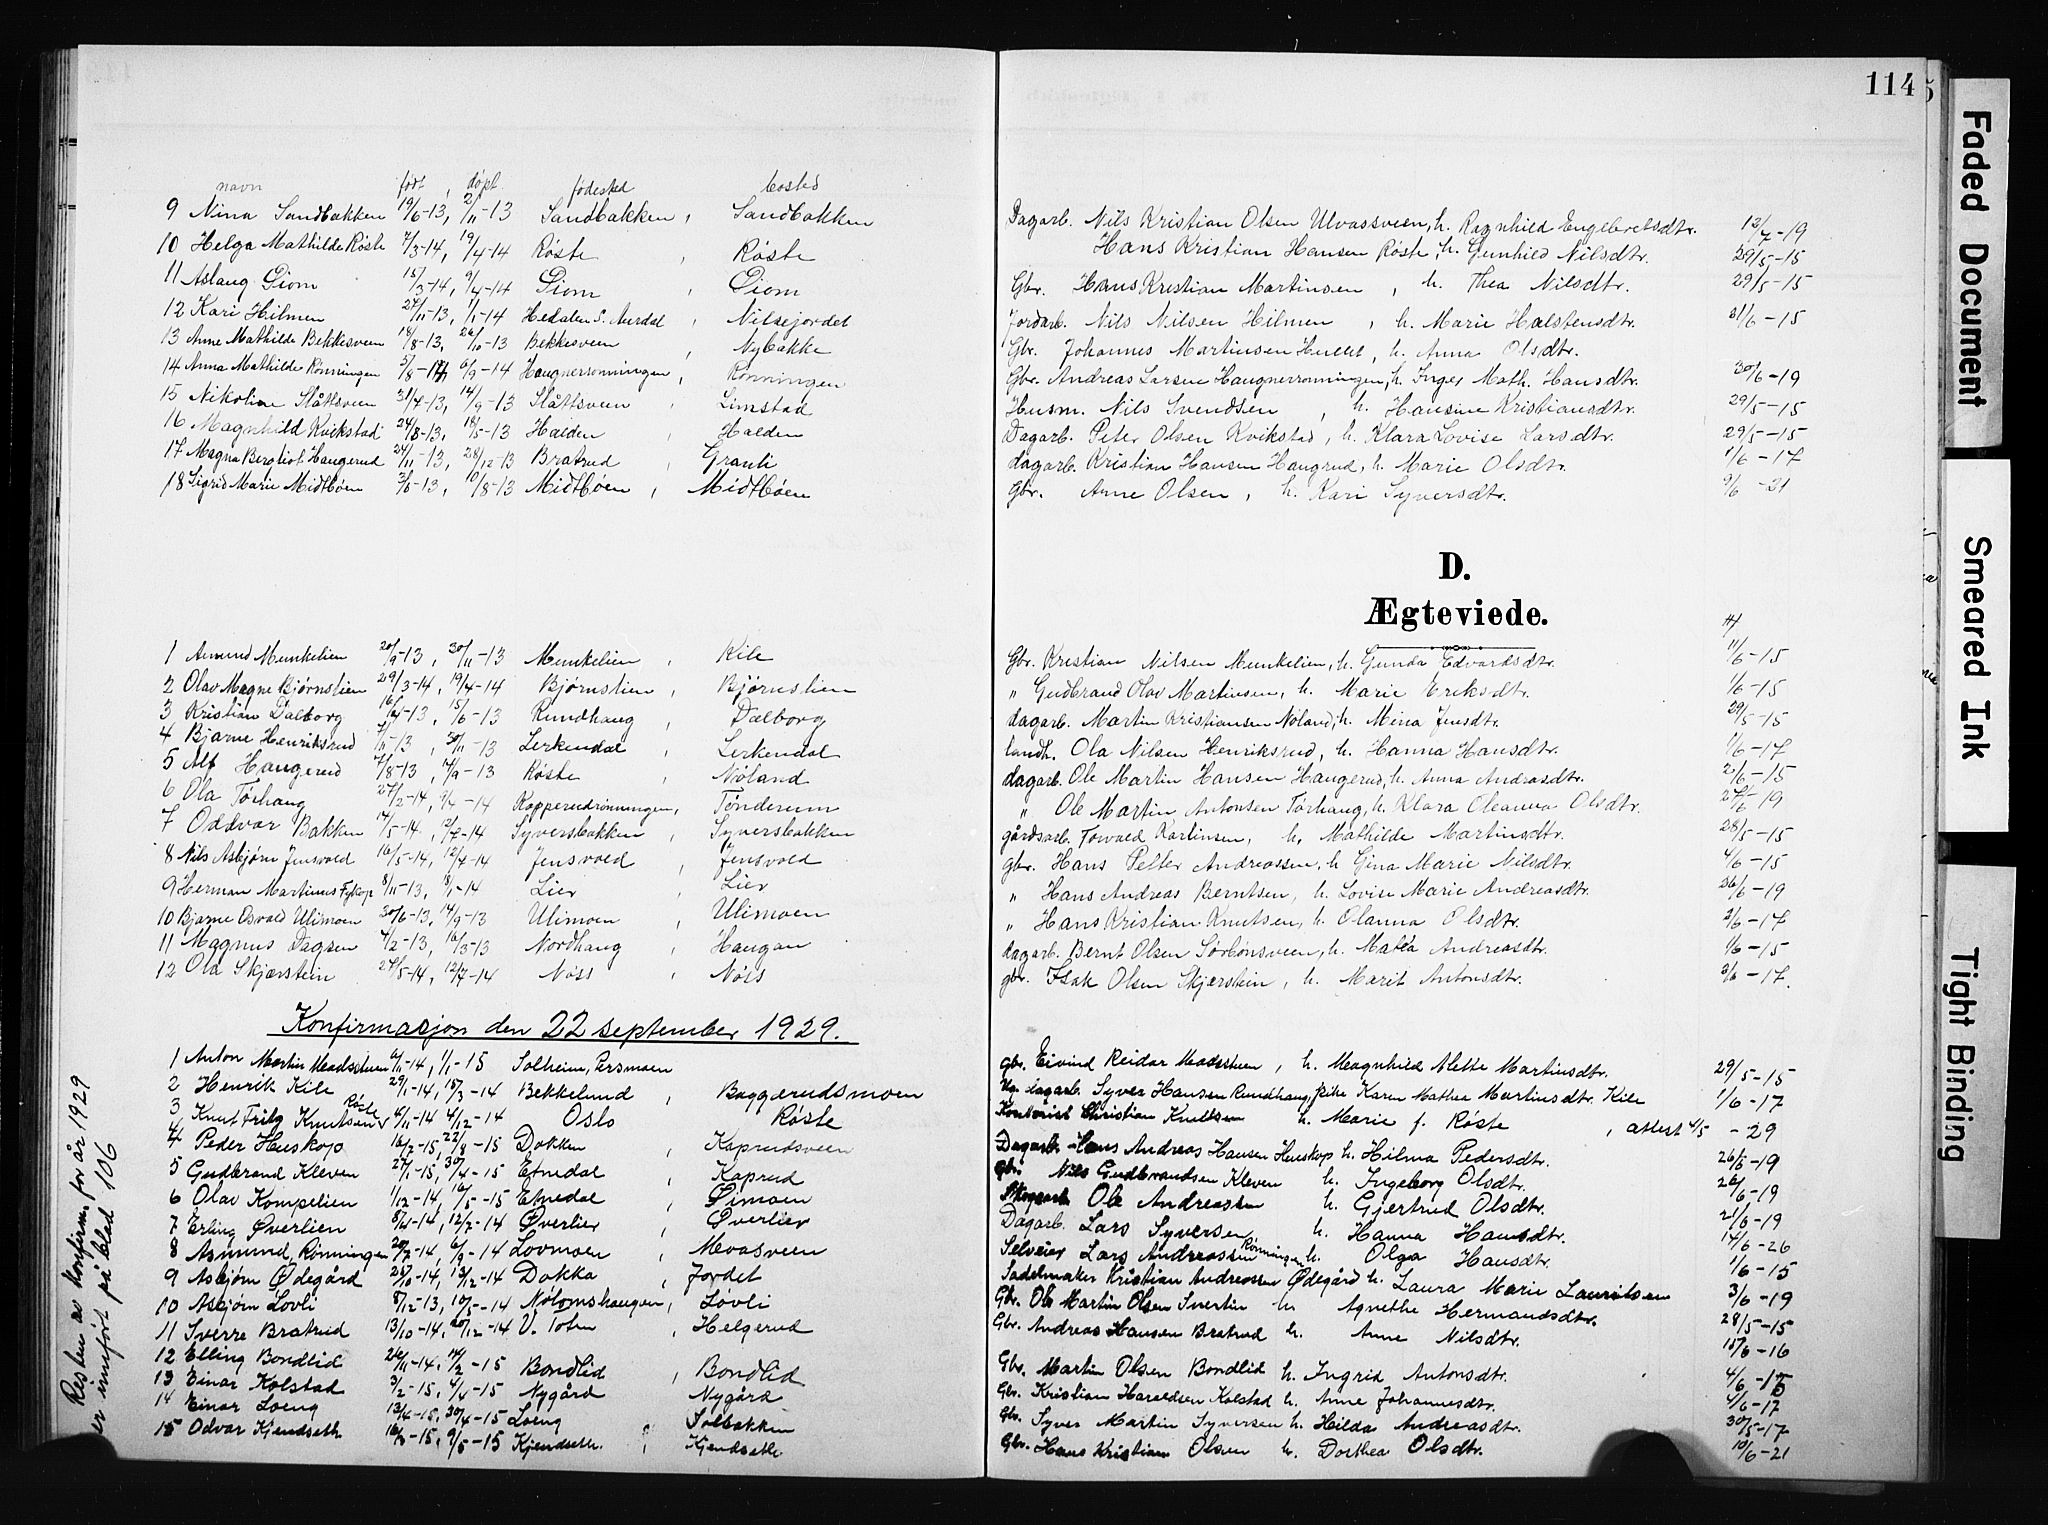 114
navn født, døpt fødested bosted
9 Nina Sandbakken 19/6-13, 2/11-13 Sandbakken, Sandbakken
Dagarb. Nils Kristian Olsen Ulvassveen, h. Ragnhild Engebretsdtr. 13/7-19
10 Helga Mathilde Røste 7/3-14, 19/4-14 Røste, Røste
Hans Kristian Hansen Røste, h. Gunhild Nilsdtr. 29/5-15
11 Aslaug Giom 15/3-14, 9/4-14 Giom, Giom
Gbr. Hans Kristian Martinsen, h. Thea Nilsdtr. 29/5-15
12 Kari Hilmen 27/11-13, 1/1-14 Hedalen S. Aurdal, Nilsejordet
Jordarb. Nils Nilsen Hilmen, h. Marie Halstensdtr. 31/6-15
13 Anne Mathilde Bekkesveen 18/8-13, 26/10-13 Bekkesveen, Nybakke
Gbr. Johannes Martinsen, h. Anna Olsdtr.
14 Anna Mathilde Rønningen 5/8-14, 6/9-14 Haugnerrønningen, Rønningen
Gbr. Andreas Larsen Haugnerrønningen, h. Inger Math. Hansdtr. 30/6-19
15 Nikoline Slåttsveen 31/7-13, 14/9-13 Slåttsveen, Limstad
Husm. Nils Svendsen, h. Hansine Kristiansdtr. 29/5-15
16 Magnhild Kvikstad 24/8-13, 18/5-13 Halden, Halden
Dagarb. Peter Olsen Kvikstad, h. Klara Lovise Larsdtr. 29/5-15
17 Magna Bergliot Haugerud 24/11-13, 28/12-13 Bratrud, Granli
dagarb. Kristian Hansen Haugrud, h. Marie Olsdtr. 1/6-17
18 Sigrid Marie Midtbøen 3/5-13, 10/8-13 Midtbøen, Midtbøen
Gbr. Arne Olsen, h. Kari Syversdtr. 9/6-31
D.
Ægteviede.
1 Amund Munkelien 20/9-13, 30/11-13 Munkelien, Kile
Gbr. Kristian Nilsen Munkelien, h. Gunda Edvardsdtr. 11/6-15
2 Olav Magne Bjørnstien 29/3-14, 19/4-14 Bjørnstien, Bjørnstien
" Gudbrand Olav Martinsen, h. Marie Eriksdtr. 1/6-15
3 Kristian Dalborg 16/4-13, 15/6-13 Rundhaug, Dalborg
dagarb. Martin Kristiansen Nøland, h. Mina Jensdtr. 29/5-15
4 Bjarne Henriksrud 7/11-13, 30/11-13 Lerkendal, Lerkendal
landh. Ola Nilsen Henriksrud, h. Hanna Hansdtr. 1/6-17
5 Alf Haugerud 7/8-13, 14/9-13 Røste, Nøland
dagarb. Ole Martin Hansen Haugerud, h. Anna Andrasdtr. 2/6-15
6 Ola Tørhaug 27/2-14, 9/4-14 Kopperudrønningen, Tønderum
" Ole Martin Antonsen Tørhaug, h. Klara Oleanna Olsdtr. 27/6-19
7 Oddvar Bakken 14/5-14, 12/7-14 Syversbakken, Syversbakken
gårdsarb. Torvald Karlinsen, h. Mathilde Martinsdtr. 28/5-15
8 Nils Asbjørn Jensvold 16/5-14, 12/7-14 Jensvold, Jensvold
gbr. Hans Petter Andreassen, h. Gina Marie Nilsdtr. 4/6-15
9 Herman Martinus 8/11-13, 8/1-14 Lier, Lier
" Hans Andreas Berntsen, h. Lovise Marie Andreasdtr. 26/6-19
10 Bjarne Osvald Ulimoen 30/6-13, 14/9-13 Ulimoen, Ulimoen
" Hans Kristian Knutsen, h. Olanna Olsdtr. 2/6-17
11 Magnus Dagsen 4/2-13, 16/3-13 Nordhaug, Haugan
dagarb. Bernt Olsen Sørbønsveen, h. Matea Andreasdtr. 1/6-15
12 Ola Skjærstein 24/5-14, 12/7-14 Nøss, Nøss
gbr. Isak Olsen Skjerstein, h. Marit Antonsdtr. 3/6-17.
Konfirmasjon den 22 september 1929.
1 Anton Martin Maadssteen 6/11-14, 1/1-15 Solheim, Persmoen
gbr. Eivind Reidar Maadssteen, h. Magnhild Alette Martinsdtr. 29/5-15
2 Henrik Kile 29/1-14, 15/3-14 Bekkelund, Baggerudsmoen
Ug. dagarb. Syver Hansen Rundhaug, pike Karen Mathea Martinsdtr. Kile 1/6-17
3 Knut Fritz Knutsen Røste 4/11-14 4/12-14 Oslo Røste
Kontorist Christian Knutsen h. Marie f. Røste, attest 4/5-29
4 Peder Huskop 16/7-15, 22/8-15 Dokken, Kaprudsveen
Dagarb. Hans Andreas Hansen Huskop h. Hilma Pedersdtr. 26/5-19
5 Gudbrand Kleven 27/1-15, 30/4-15 Etnedal, Kaprud
Gbr. Nils Gudbrandsen Kleven h. Ingeborg Olsdtr. 26/6-19
6 Olav Kompelien 1/12-14, 16/5-15 Etnedal, Øimoen
Skogsarb Ole Andreassen h. Gjertrud Olsdtr. 21/6-19
7 Erling Øverlien 8/6-14, 12/7-14 Øverlier, Øverlier
Dagarb. Lars Syversen h. Hanna Hansdtr. 14/6-26
8 Asmund Rønningen 20/7-14, 6/9-14 Lovmoen, Mevasveen
Selveier Lars Andreassen Rønningen h. Olga Hansdtr. 1/6-15
9 Asbjørn Ødegård 25/10-14, 13/12-14 Dokka, Jordet
Sadelmaker Kristian Andreassen Ødegård h. Laura Marie Lauritsen 3/6-19
10 Asbjørn Lovli 8/12-13, 10/5-14 Nølomshaugen, Løvli
Gbr. Ole Martin Olsen Svertin h. Agnethe Hermandsdtr. 28/5-15
11 Sverre Bratrud 13/10-14, 20/12-14 V. Toten, Helgerud
Gbr. Andreas Hansen Bratrud h. Anne Nilsdtr. 15/6-16
12 Elling Bondlid 26/11-14, 14/2-15 Bondlid, Bondlid
Gbr. Martin Olsen Bondlid h. Ingrid Antonsdtr. 4/6-15
13 Einar Kolstad 3/2-15, 4/4-15 Nygård Nygård
Gbr. Kristian Haraldsen Kolstad h. Anne Johannesdtr. 4/6-17
14 Einar Loeng 13/4-15, 30/4-15 Loeng Solbakken
Gbr. Syver Martin Syversen h. Hilda Andreasdtr. 30/5-17
15 Odvar Kjendseth 16/3-15, 9/5-15 Kjendseth, Kjendseth
Gbr. Hans Kristian Olsen h. Dorthea Olsdtr. 10/6-21
Resten av konfirm. for år 1929
er innført på blad 106
Faded Document
Smeared Ink
Tight Binding